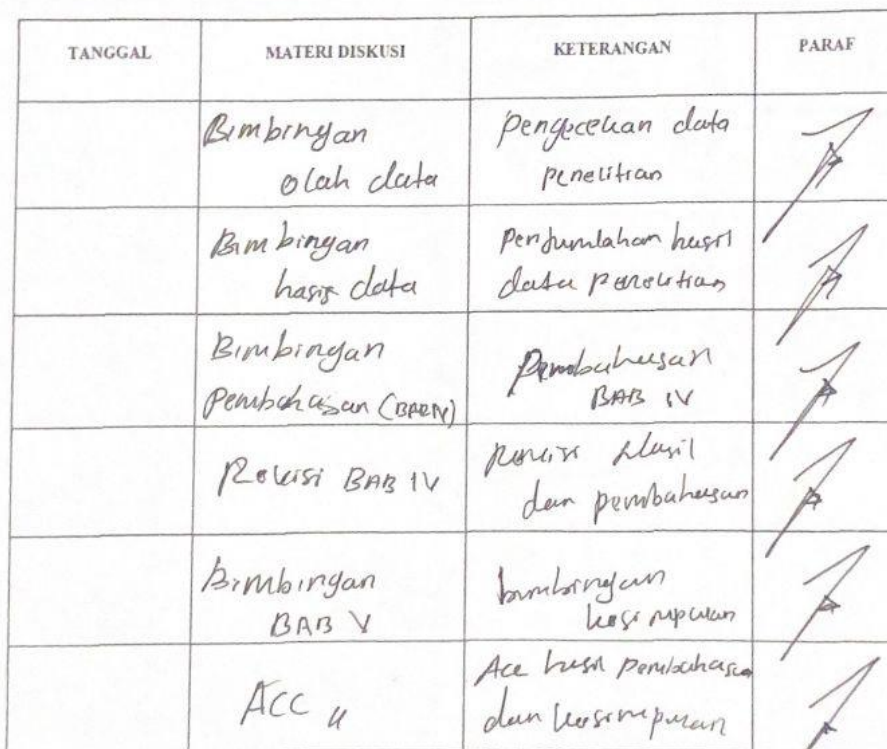 TANGGAL MATERI DISKUSI KETERANGAN PARAF
Bimbingan Pengecekan data
olah data penelitian
Bimbingan Penjumlahan hasil
hasil data data penelitian
Bimbingan Pembahasan
Pembahasan (BAB IV) BAB IV
Revisi BAB IV Revisi Hasil
dan pembahasan
Bimbingan bimbingan
BAB V kesimpulan
ACC Acc hasil pembahasan
dan kesimpulan